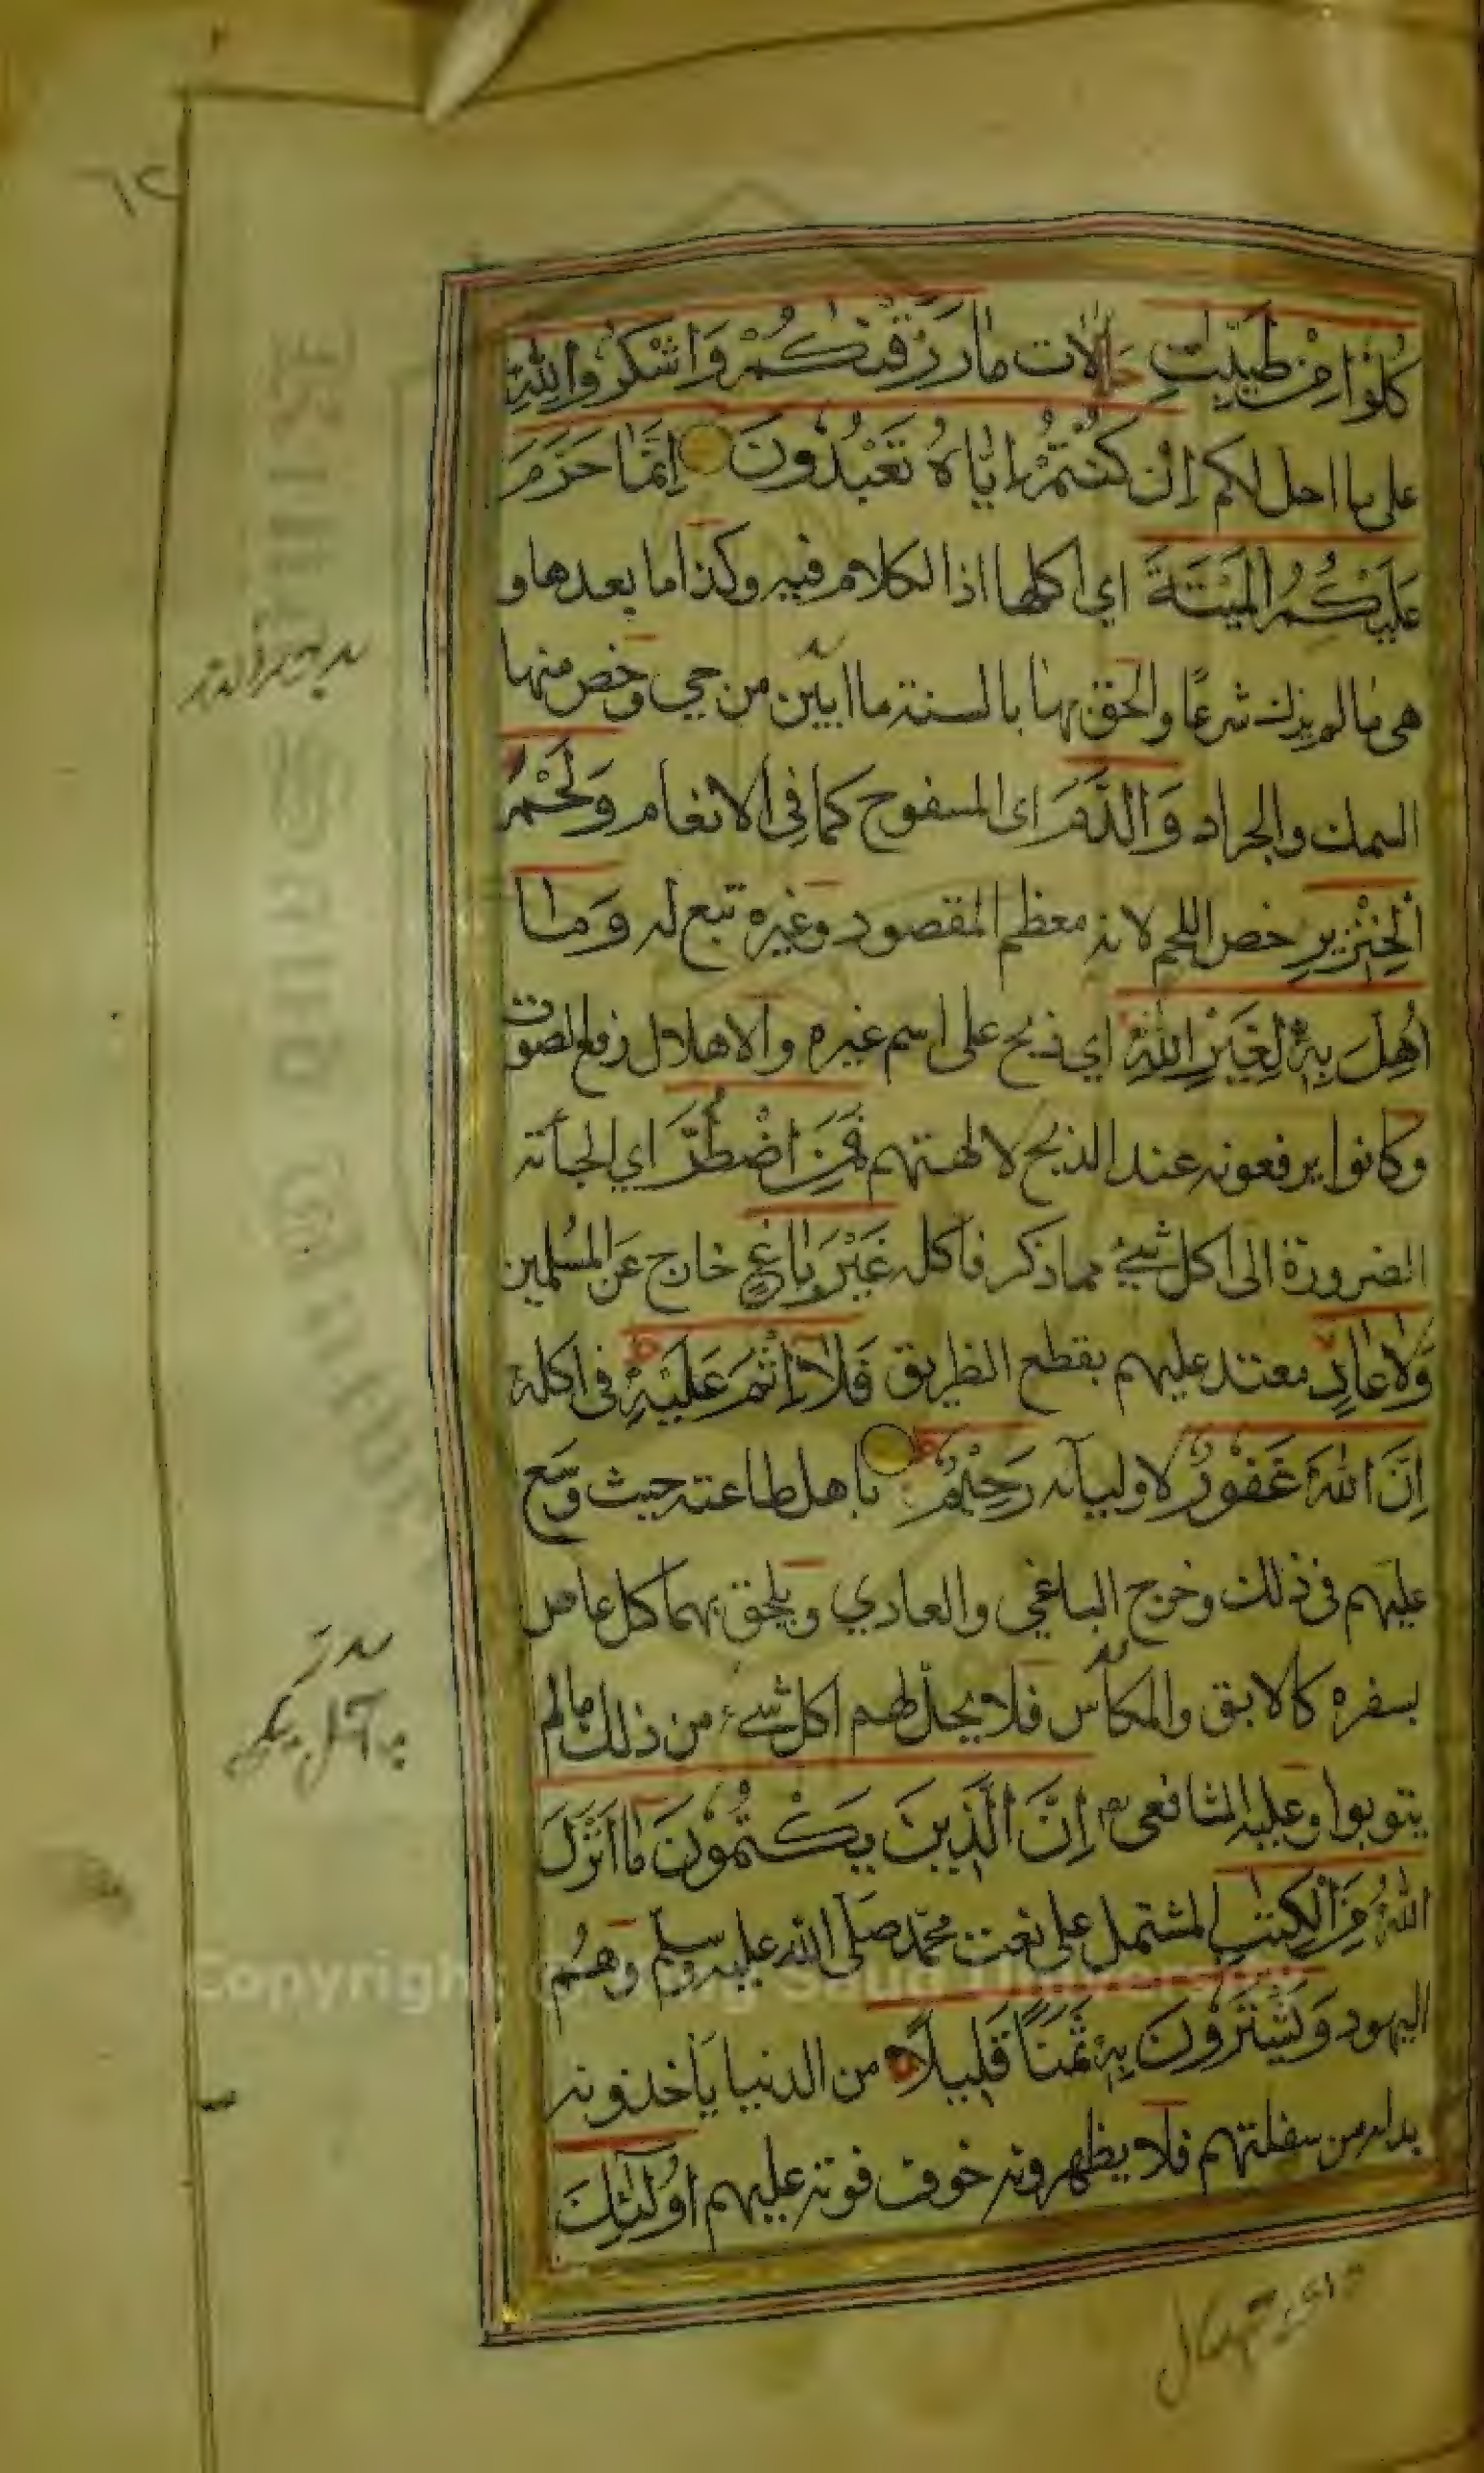 ٦٢
كُلُوْا مِنْ طَيِّبٰتِ حلالات مَا رَزَقْنٰكُمْ وَاشْكُرُوا لِلّٰهِ
على ما احل لكم اِنْ كُنْتُمْ اِيَّاهُ تَعْبُدُوْنَ اِنَّمَا حَرَّمَ
عَلَيْكُمُ الْمَيْتَةَ اي اكلها اذا الكلام فيه وكذا ما بعدها و
هي ما لم يذك شرعًا والحق بها بالسنة ما ابين من حي وخص منها
السمك والجراد وَالدَّمَ اى المسفوح كما في الانعام وَلَحْمَ
الْخِنْزِيرِ خص اللحم لانه معظم المقصود وغيره تبع له وَمَا
اُهِلَّ بِهٖ لِغَيْرِ اللّٰهِ اي ذبح على اسم غيره والاهلال رفع الصوت
وكانوا يرفعونه عند الذبح لالهتهم فَمَنِ اضْطُرَّ اي الجأته
الضرورة الى اكل شيئ مما ذكر فاكله غَيْرَ بَاغٍ خارج عَن المسلمين
وَلَا عَادٍ معتد عليهم بقطع الطريق فَلَا اِثْمَ عَلَيْهِ في اكله
اِنَّ اللّٰهَ غَفُوْرٌ لاوليائه رَحِيْمٌ باهل طاعته حيث وسع
عليهم في ذلك وخرج الباغي والعادي ويلحق بهما كل عاص
بسفره كالابق والمكاس فلا يحل لهم اكل شيء من ذلك مالم
يتوبوا وعليه الشافعي اِنَّ الَّذِيْنَ يَكْتُمُوْنَ مَا اَنْزَلَ
اللّٰهُ مِنَ الْكِتٰبِ المشتمل على نعت محمد صلى الله عليه وسلم وهم
اليهود وَيَشْتَرُوْنَ بِهٖ ثَمَنًا قَلِيلًا من الدنيا ياخذونه
بدله من سفلتهم فلا يظهرونه خوف فوته عليهم اُولٰٓئِكَ
King Saud University
Copyright © King Saud University